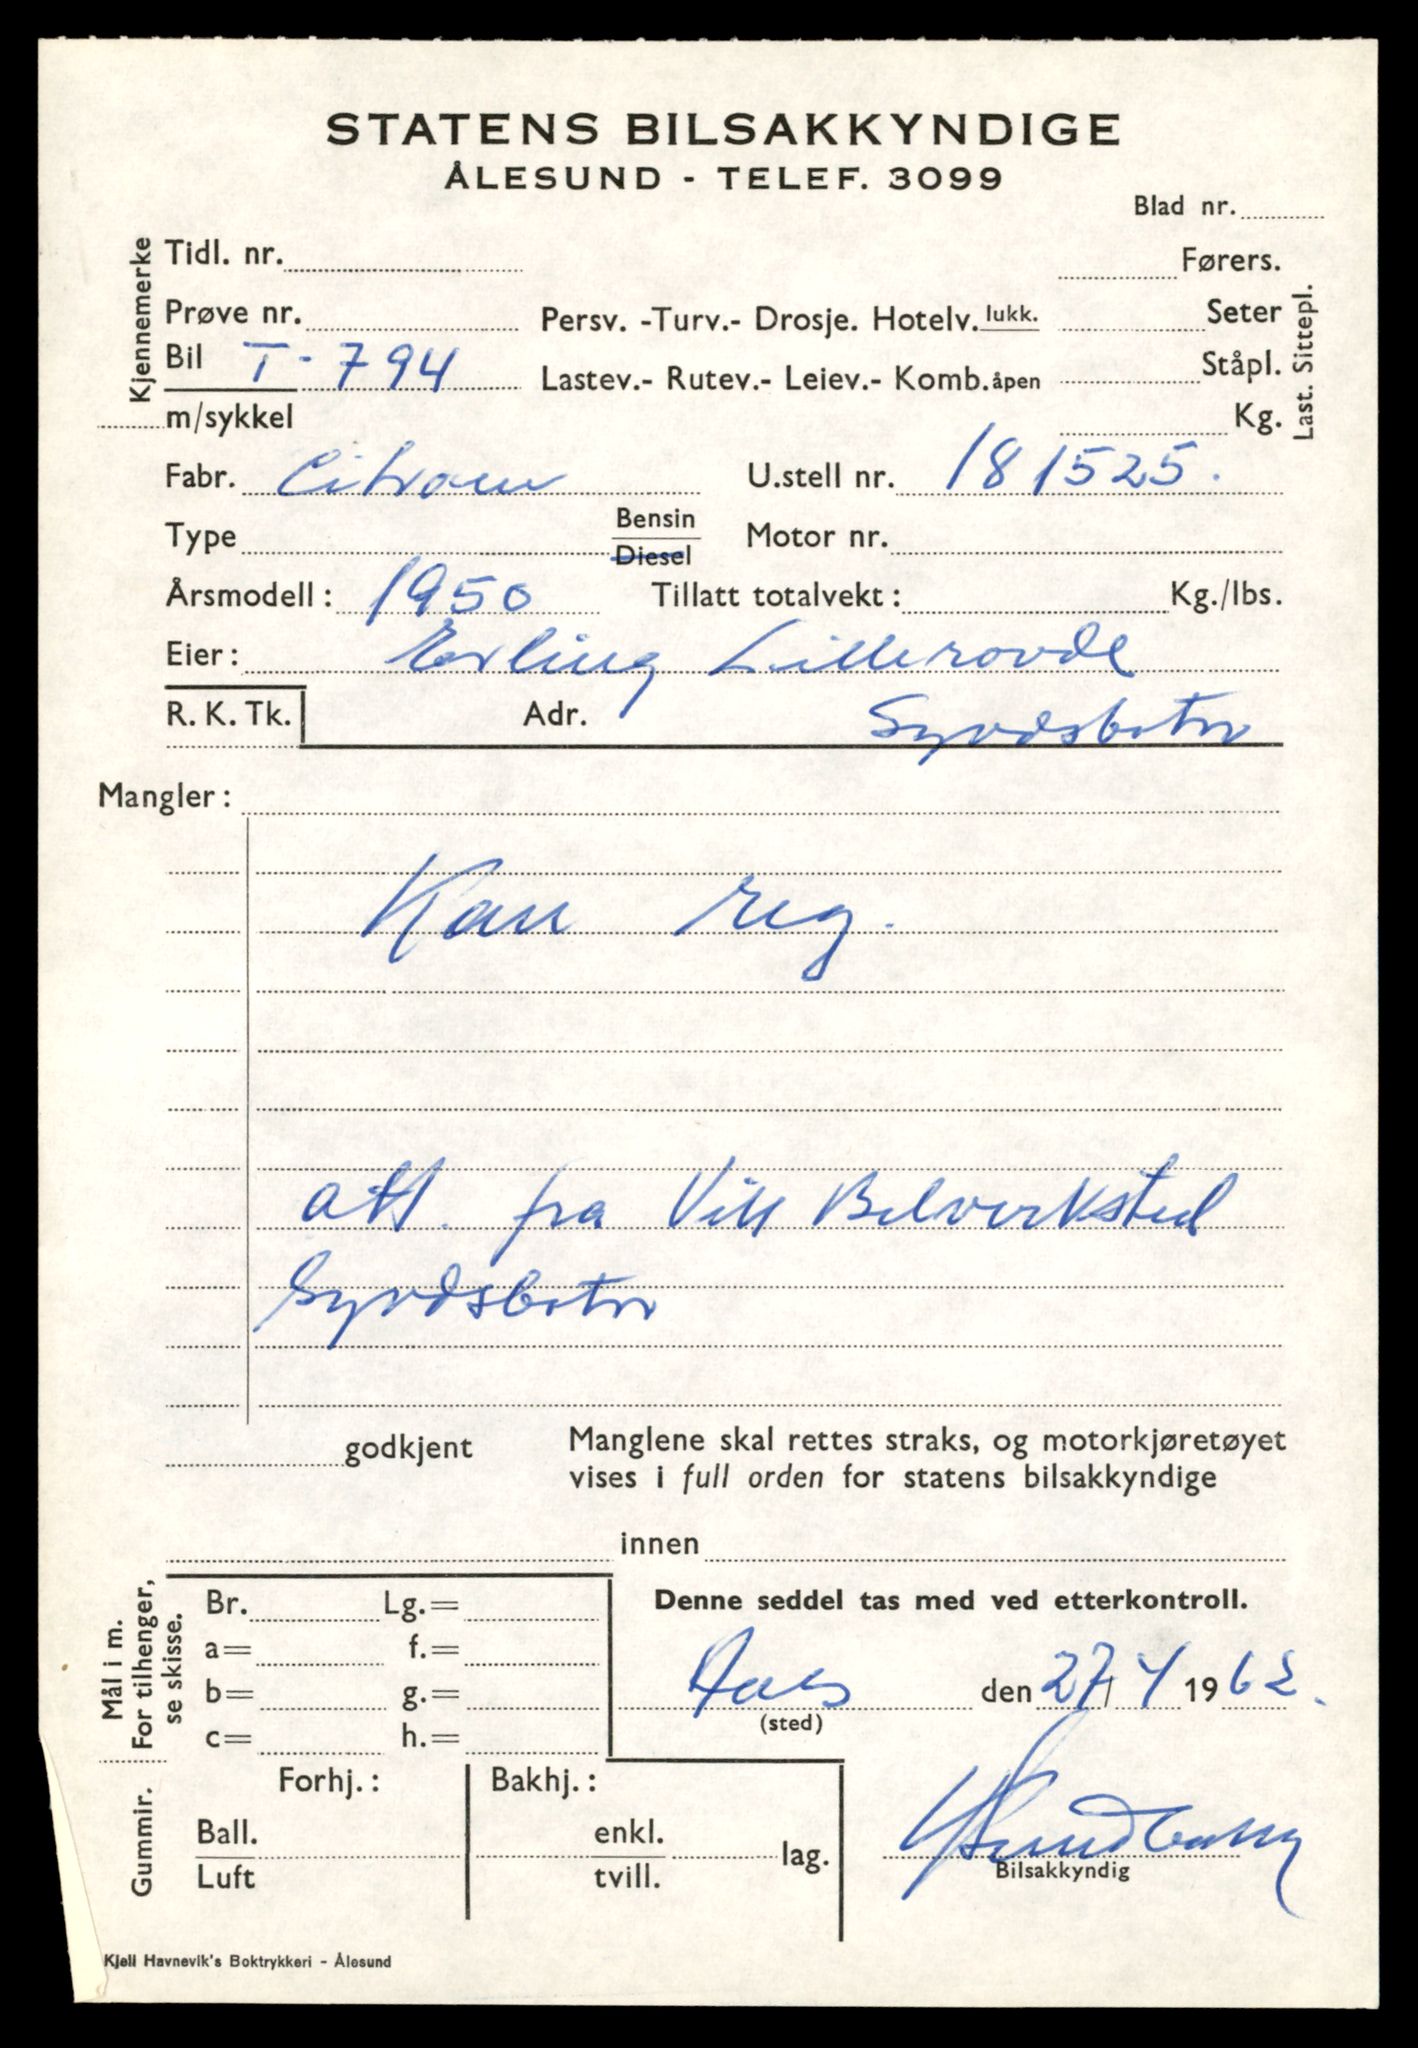 STATENS BILSAKKYNDIGE
ÅLESUND - TELEF. 3099
Blad nr.
Kjennemerke
Tidl. nr.
Førers.
Prøve nr.
Persv. -Turv.- Drosje. Hotelv. lukk.
Seter
Bil T-794
Lastev.- Rutev.- Leiev.- Komb. åpen
Ståpl.
Last. Sittepl.
m/sykkel
Kg.
Fabr. Citroen U.stell nr. 181525.
Type Bensin
Diesel
Motor nr.
Årsmodell: 1950 Tillatt totalvekt: Kg./lbs.
Eier: Erling Lillerovde
R. K. Tk. Adr. Syvdsbotn
Mangler:
Kan reg.
att. fra Vik Bilverksted
Syvdsbotn
godkjent
Manglene skal rettes straks, og motorkjøretøyet
vises i full orden for statens bilsakkyndige
innen
Mål i m.
For tilhenger,
se skisse.
Br. Lg.=
a= f.=
b= g.=
c= h.=
Denne seddel tas med ved etterkontroll.
den 27/4 1962.
(sted)
Gummir.
Forhj.: Bakhj.:
Ball. enkl.
Luft tvill. lag.
Bilsakkyndig
Kjell Havnevik's Boktrykkeri - Ålesund